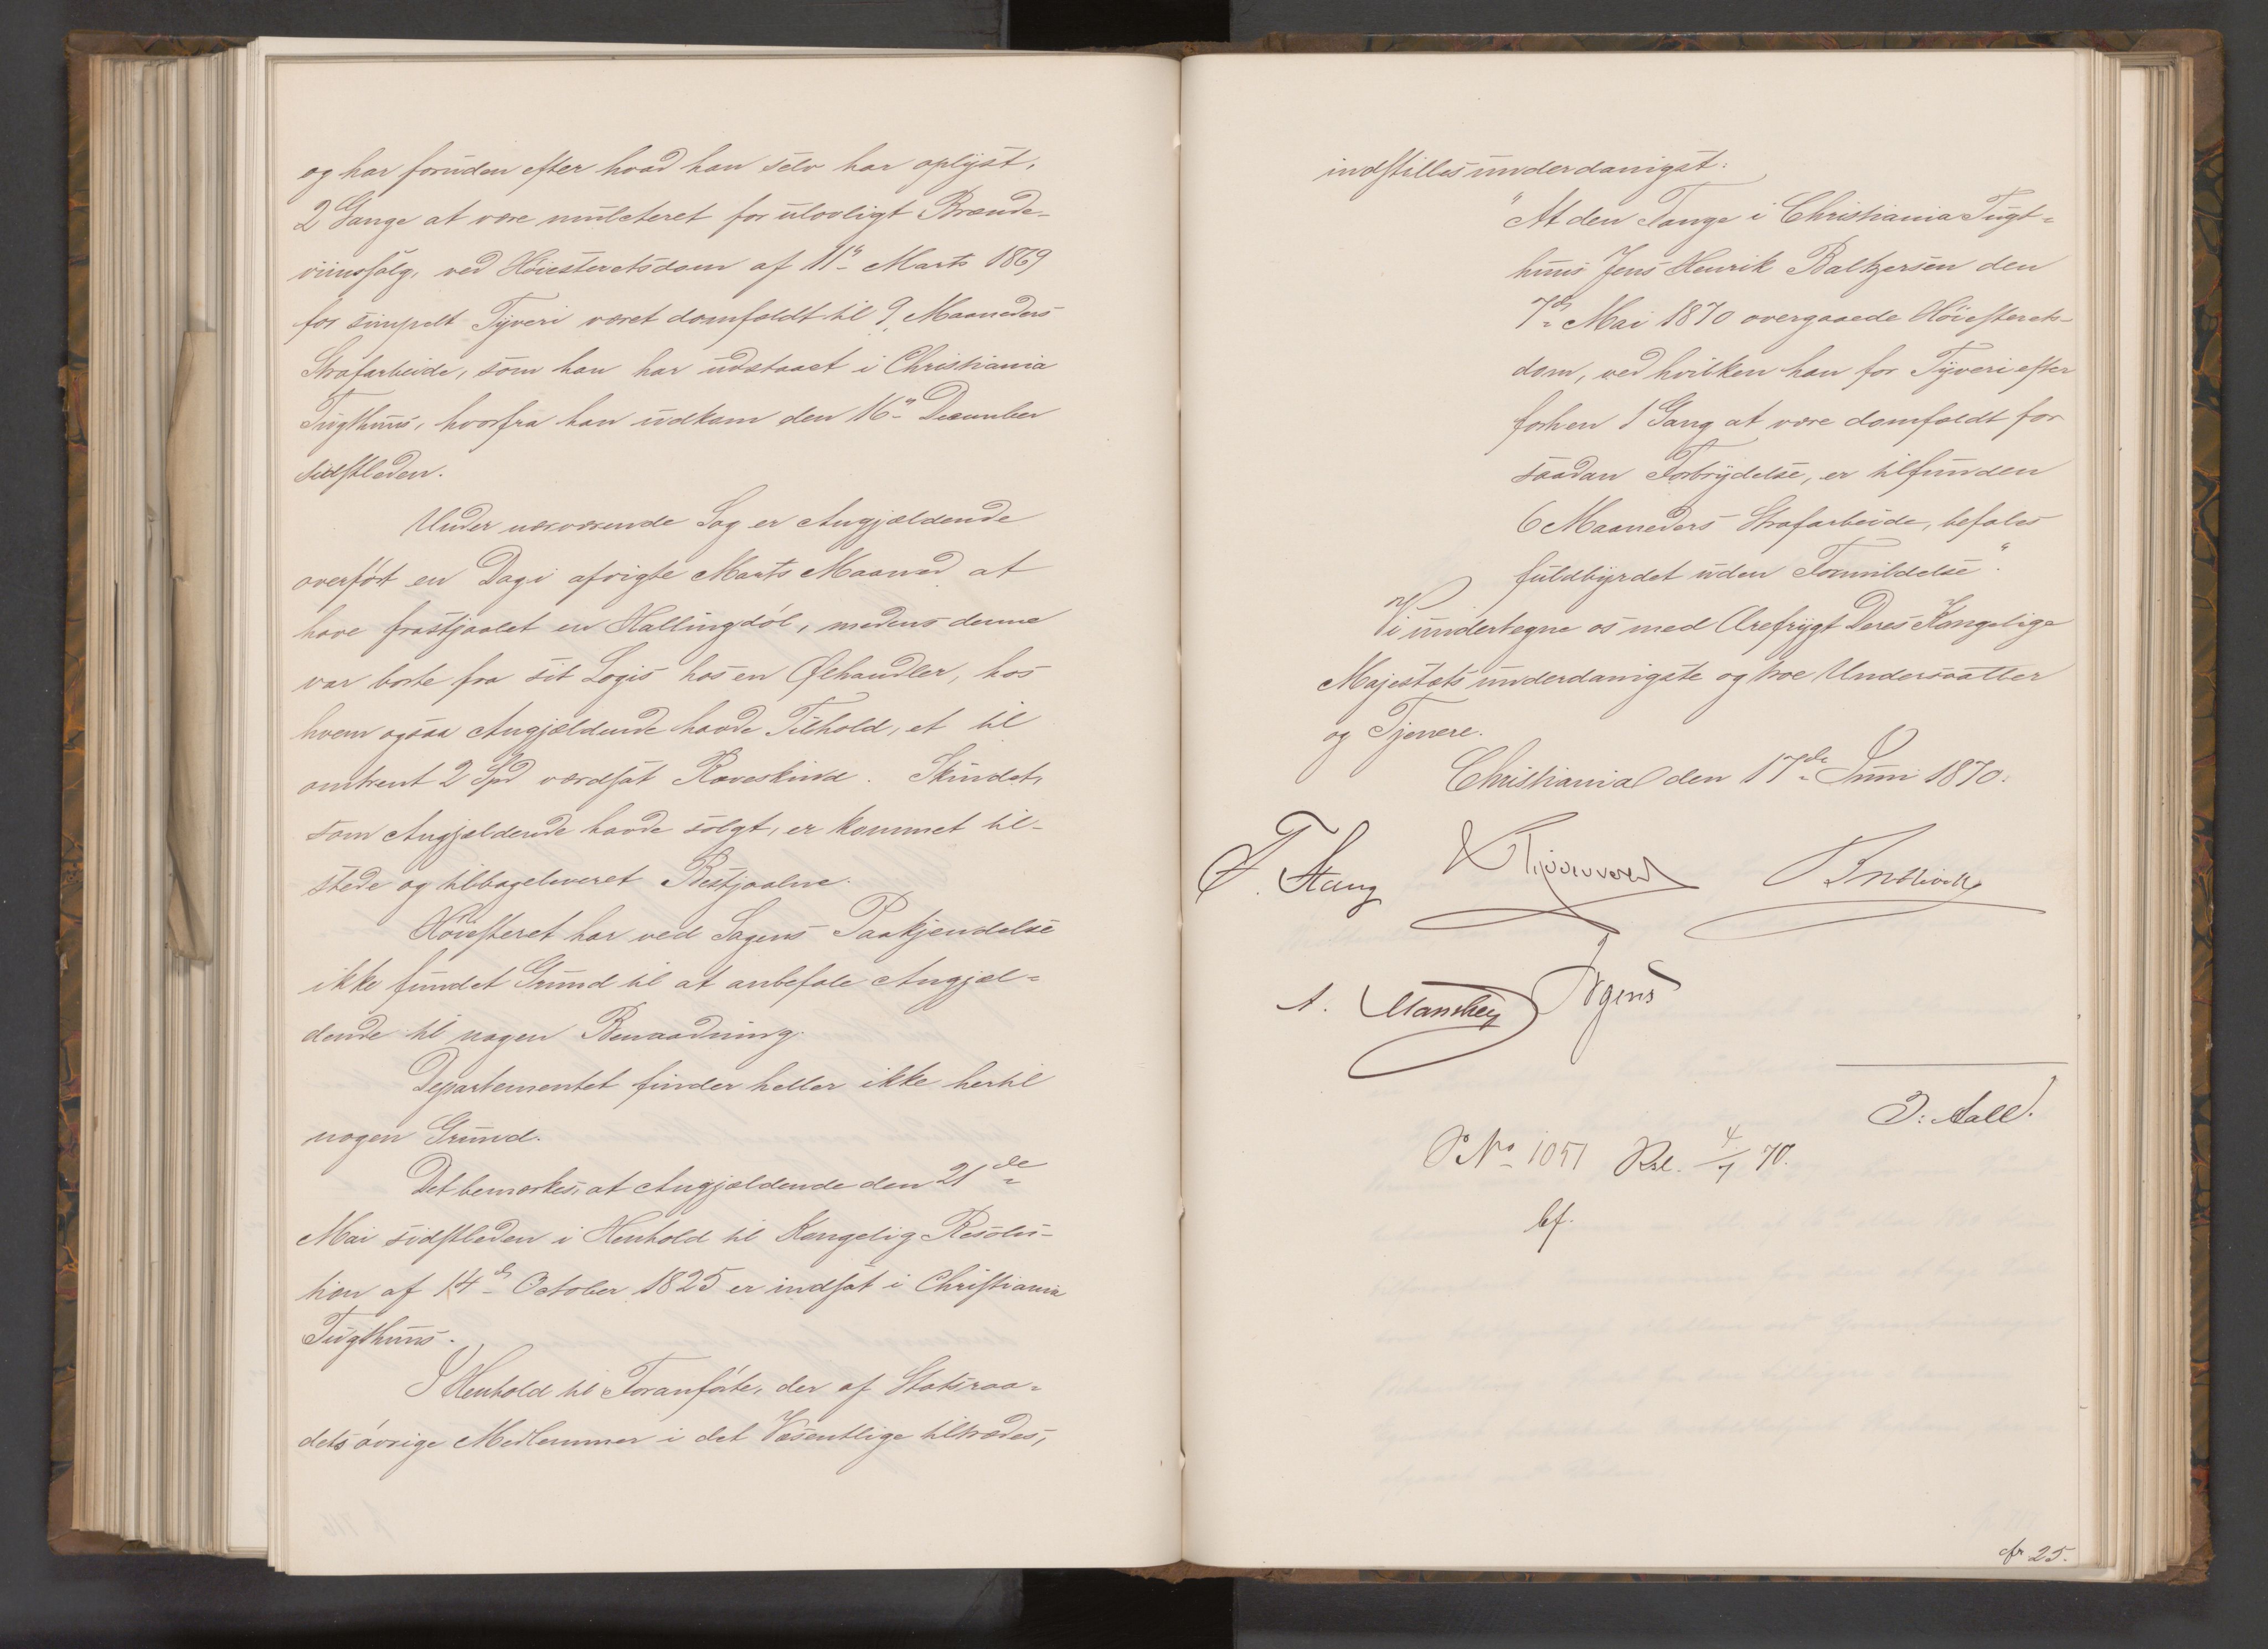 og har foruden efter hvad han selv har oplyst,
2 Gange at være mulcteret for ulovligt Brænde-
viinssalg, ved Høiesteretsdom af 11te Marts 1869
for simpelt Tyveri været domfældt til 9 Maaneders
Strafarbeide, som han har udstaaet i Christiania
Tugthuus, hvorfra han udkom den 16de December
sidstleden.
Under nærværende Sag er Angjældende
overført en Dag i afvigte Marts Maaned at
have frastjaalet en Hallingdøl, medens denne
var borte fra sit Logis hos en Ølhandler, hos
hvem ogsaa Angjældende havde Tilhold, et til
omtrent 2 Spd værdsat Ræveskind. Skindet,
som Angjældende havde solgt, er kommet til-
stede og tilbageleveret Bestjaalne.
Høiesteret har ved Sagens Paakjendelse
ikke fundet Grund til at anbefale Angjæl-
dende til nogen Benaadning.
Departementet finder heller ikke hertil
nogen Grund.
Det bemærkes, at Angjældende den 21de
Mai sidstleden i Henhold til Kongelig Resolu-
tion af 14de October 1825 er indsat i Christiania
Tugthuus.
I Henhold til Foranførte, der af Statsraa-
dets øvrige Medlemmer i det Væsentlige tiltrædes,
indstilles underdanigst:
"At den Fange i Christiania Tugt-
huus Jens Henrik Baltzersen den
7de Mai 1870 overgaaede Høiesterets-
dom, ved hvilken han for Tyveri efter
forhen 1 Gang at være domfældt for
saadan Forbrydelse, er tilfunden
6 Maaneders Strafarbeide, befales
fuldbyrdet uden Formildelse".
Vi undertegne os med Ærefrygt Deres Kongelige
Majestæts underdanigste og troe Undersaatter
og Tjenere.
Christiania den 17de Juni 1870.
F. Stang
A. Manthey Irgens
J. Aall.
No 1051 Rsl. 4/7 70.
bf.
cfr 25.